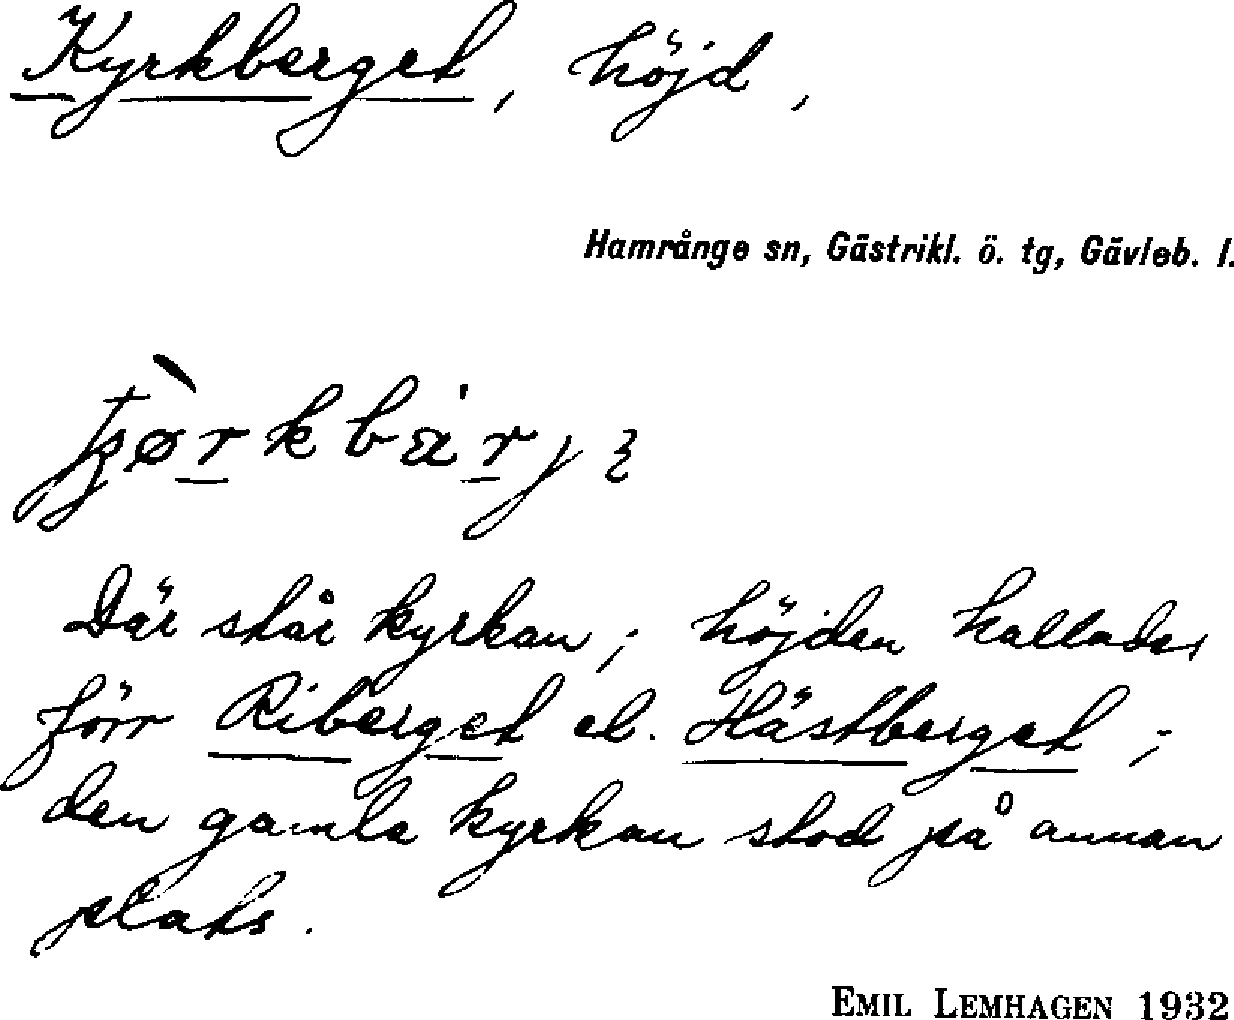 Kyrkberget, höjd,
Hamrånge sn, Gästrikl. ö. tg, Gävleb. l.
Där står kyrkan; höjden kallades
förr Riberget el. Hästberget;
den gamla kyrkan stod på annan
plats.
EMIL LEMHAGEN 1932